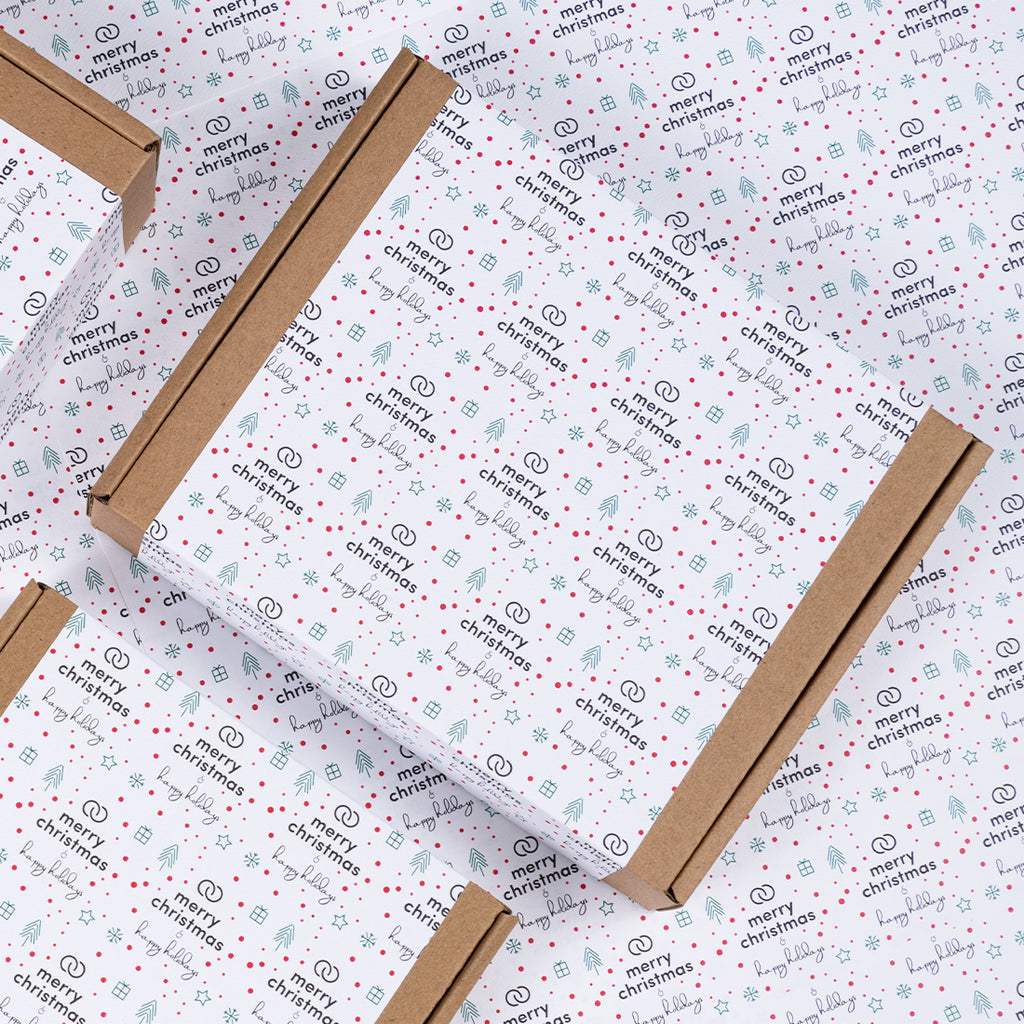 merry
christmas
&
happy holidays